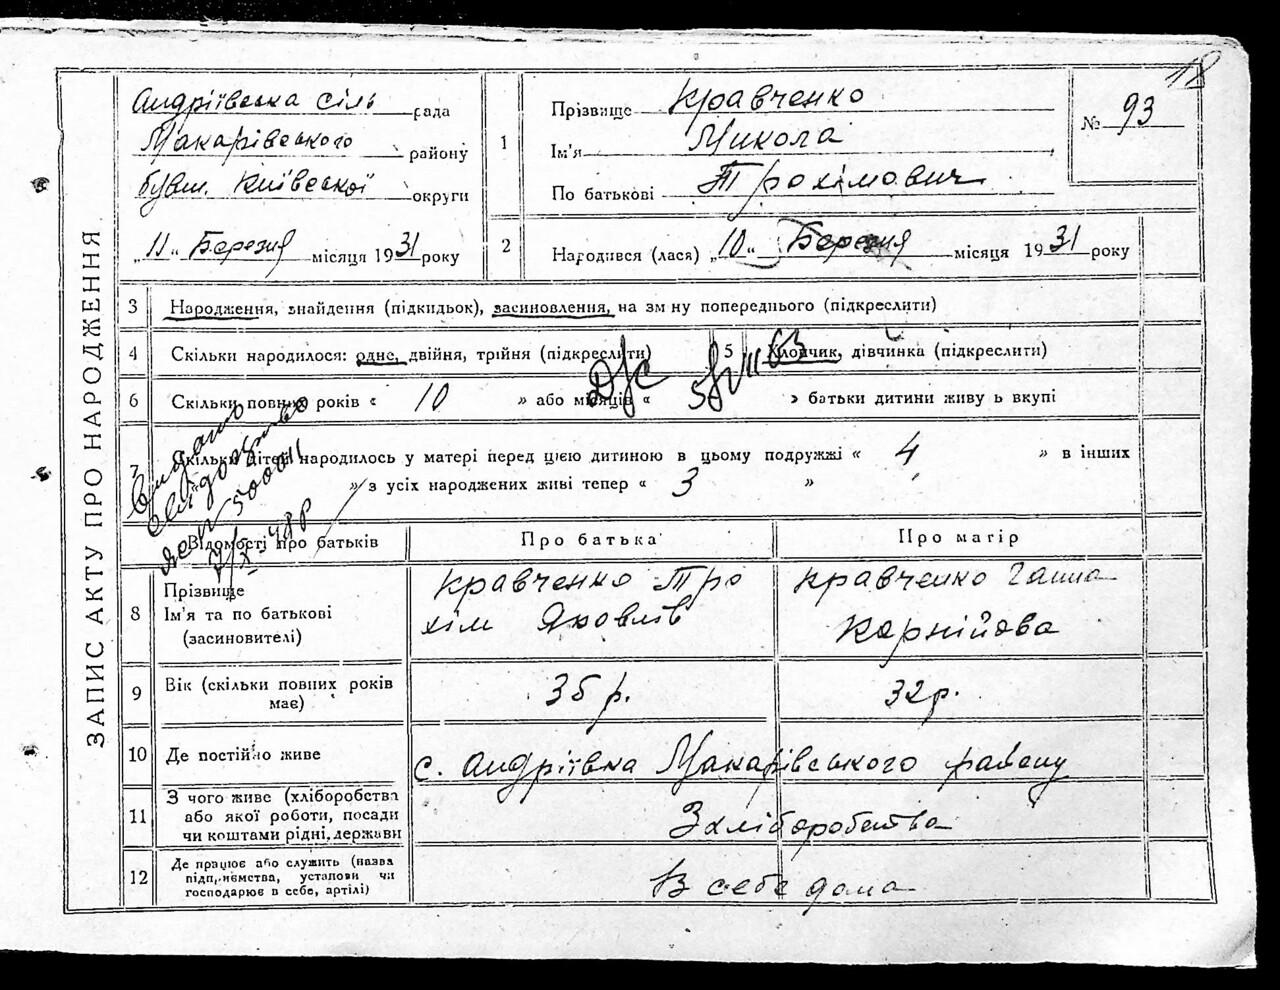 18
ЗАПИС АКТУ ПРО НАРОДЖЕННЯ
Андріївська сіль рада
Макарівського району
бувш. Київської округи
„11“ Березня місяця 1931 року
1
Прізвище Кравченко
Ім'я Микола
По батькові Трохимович
№ 93
2 Народився (лася) „10“ Березня місяця 1931 року
3 Народження, знайдення (підкидьок), засиновлення, на зм ну попереднього (підкреслити)
4 Скільки народилося: одне, двійня, трійня (підкреслити) 5 Хлопчик, дівчинка (підкреслити)
6 Скільки повних років « 10 » або місяців « » батьки дитини живу ь вкупі
7 Скільки дітей народилось у матері перед цією дитиною в цьому подружжі « 4 » в інших
» з усіх народжених живі тепер « 3 »
Видано
свідоцтво
Відомості про батьків Про батька Про матір
8 Прізвище
Ім'я та по батькові
(засиновителі)
Кравченко Тро
хім Яковлів
Кравченко Ганна
Корнійова
9 Вік (скільки повних років
має)
35 р. 32 р.
10 Де постійно живе с. Андріївка Макарівського району
11 З чого живе (хліборобства
або якої роботи, посади
чи коштами рідні, держави
З хліборобства
12 Де працює або служить (назва
підприємства, установи чи
господарює в себе, артілі)
В себе дома